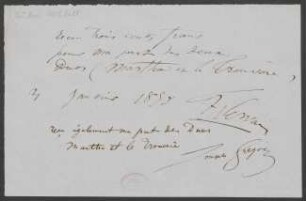 Reçu trois cents francs
pour ma part des deux
Duos (Martha et le Trouvère)
4 Janvier 1859
reçu également ma part des Duos
Martha et le Trouvère